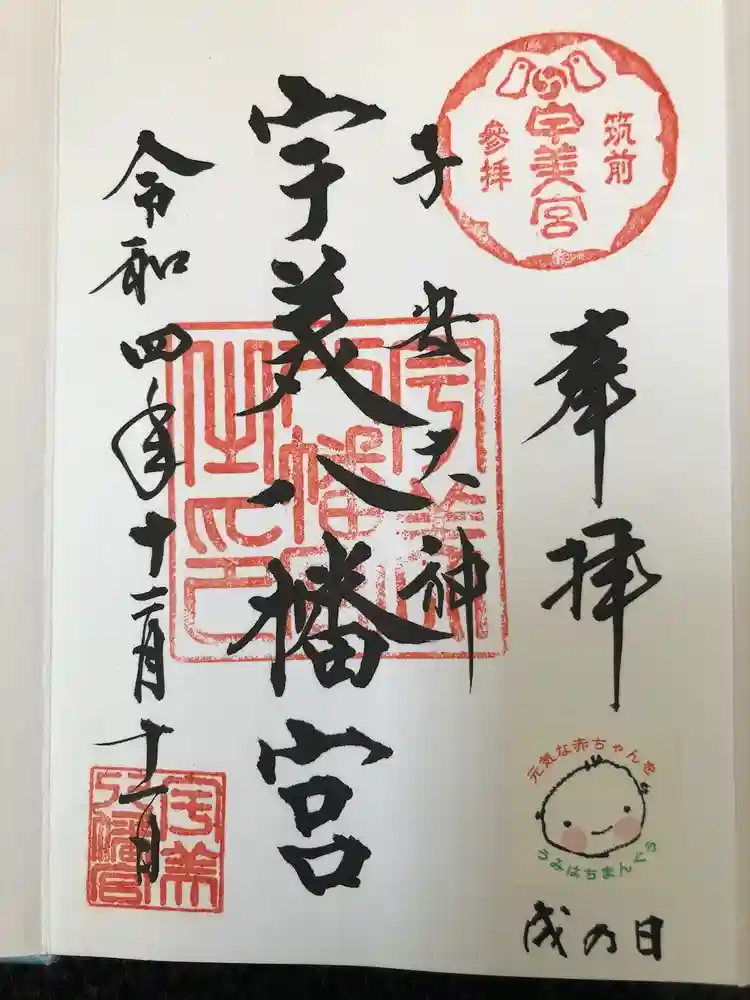 奉拝
筑前
宇美宮
參拝
子安大神
宇美八幡宮
令和四年十二月十一日
元気な赤ちゃんを
うみはちまんぐう
戌の日
宇美
八幡宮